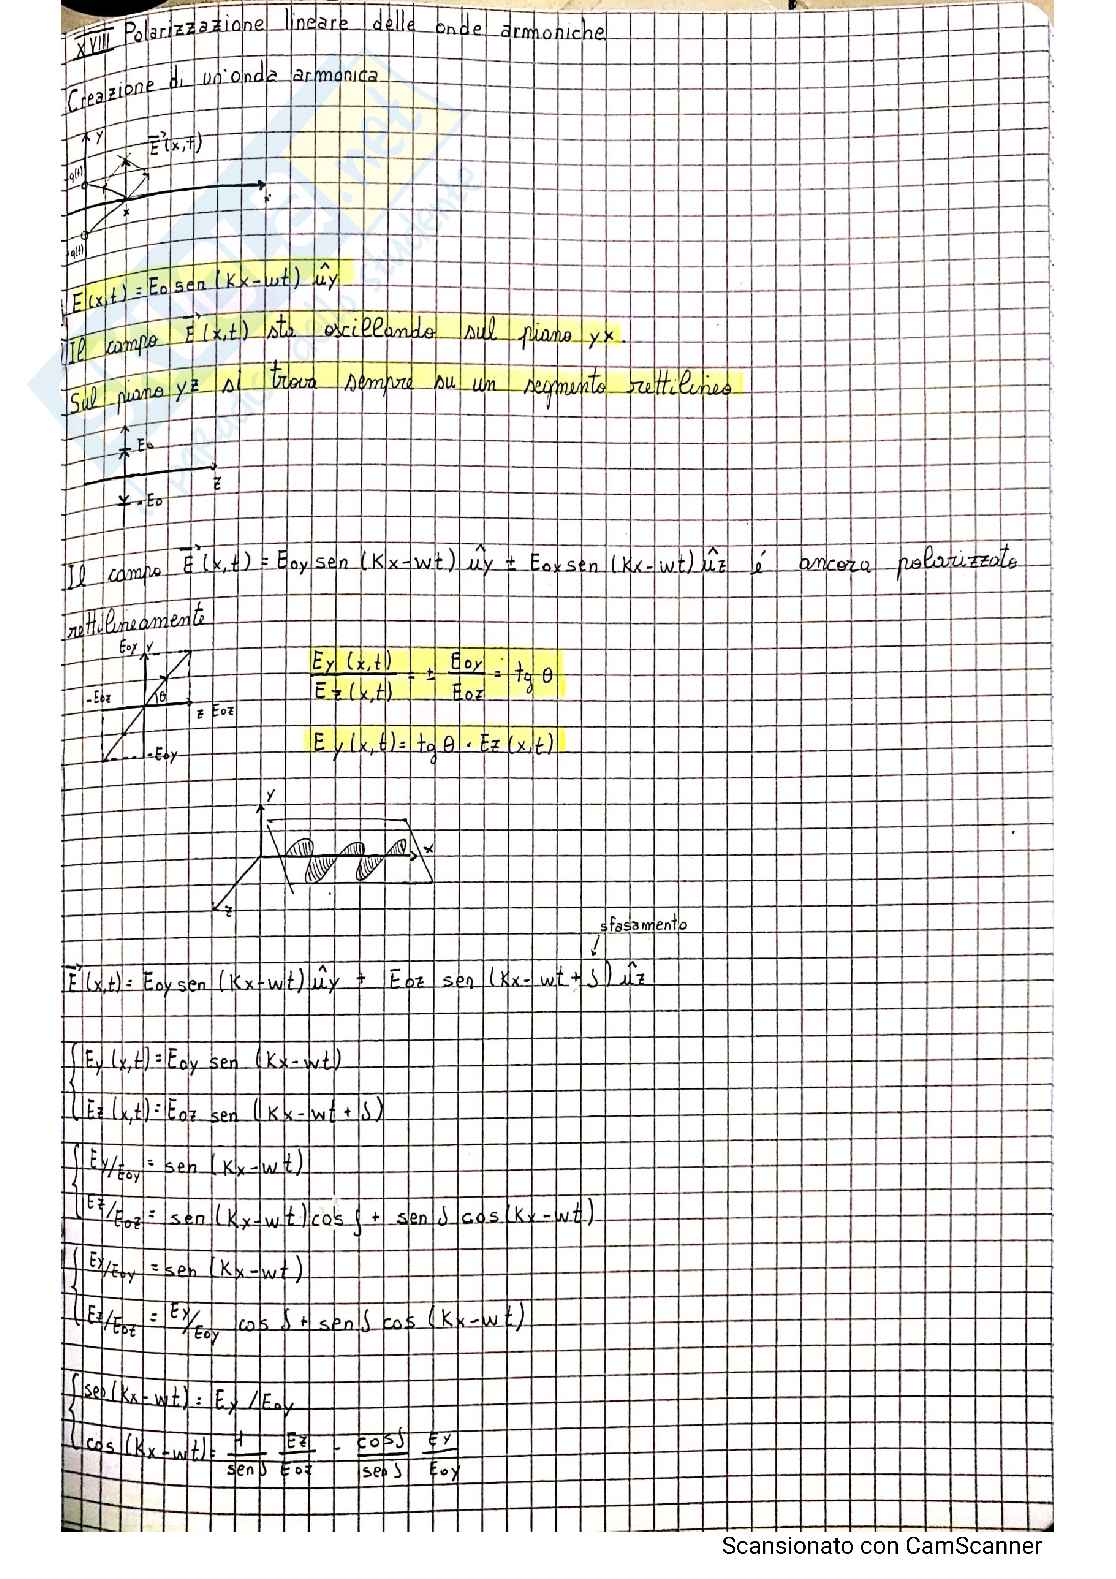 XVIII Polarizzazione lineare delle onde armoniche
Creazione di un'onda armonica
y
E(x,t)
q(t)
x
q(t)
E(x,t) = Eo sen (Kx-wt) ûy
Il campo E(x,t) sta oscillando sul piano yx.
Sul piano yz si trova sempre su un segmento rettilineo
Eo
z
-Eo
Il campo E(x,t) = Eoy sen (Kx-wt) ûy ± Eox sen (Kx-wt) ûz é ancora polarizzato
rettilineamente
Eoy y
-Eoz θ
z Eoz
-Eoy
Ey (x,t) / Ez (x,t) = ± Eoy / Eoz = tg θ
Ey (x,t) = tg θ · Ez (x,t)
y
x
z
sfasamento
E(x,t) = Eoy sen (Kx-wt) ûy + Eoz sen (Kx-wt+δ) ûz
Ey (x,t) = Eoy sen (Kx-wt)
Ez (x,t) = Eoz sen (Kx-wt+δ)
Ey/Eoy = sen (Kx-wt)
Ez/Eoz = sen (Kx-wt) cos δ + sen δ cos (Kx-wt)
Ey/Eoy = sen (Kx-wt)
Ez/Eoz = Ey/Eoy cos δ + sen δ cos (Kx-wt)
sen (Kx-wt) = Ey / Eoy
cos (Kx-wt) = 1/sen δ Ez/Eoz - cos δ/sen δ Ey/Eoy
Scansionato con CamScanner